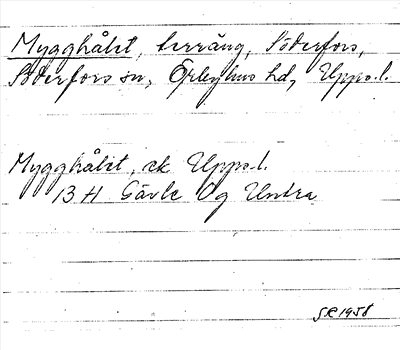 Mygghålet, terräng, Söderfors,
Söderfors sn, Örbyhus hd, Upps.l.
Mygghålet, ek Upps.l.
13 H Gävle 0g Untra
SR 1958